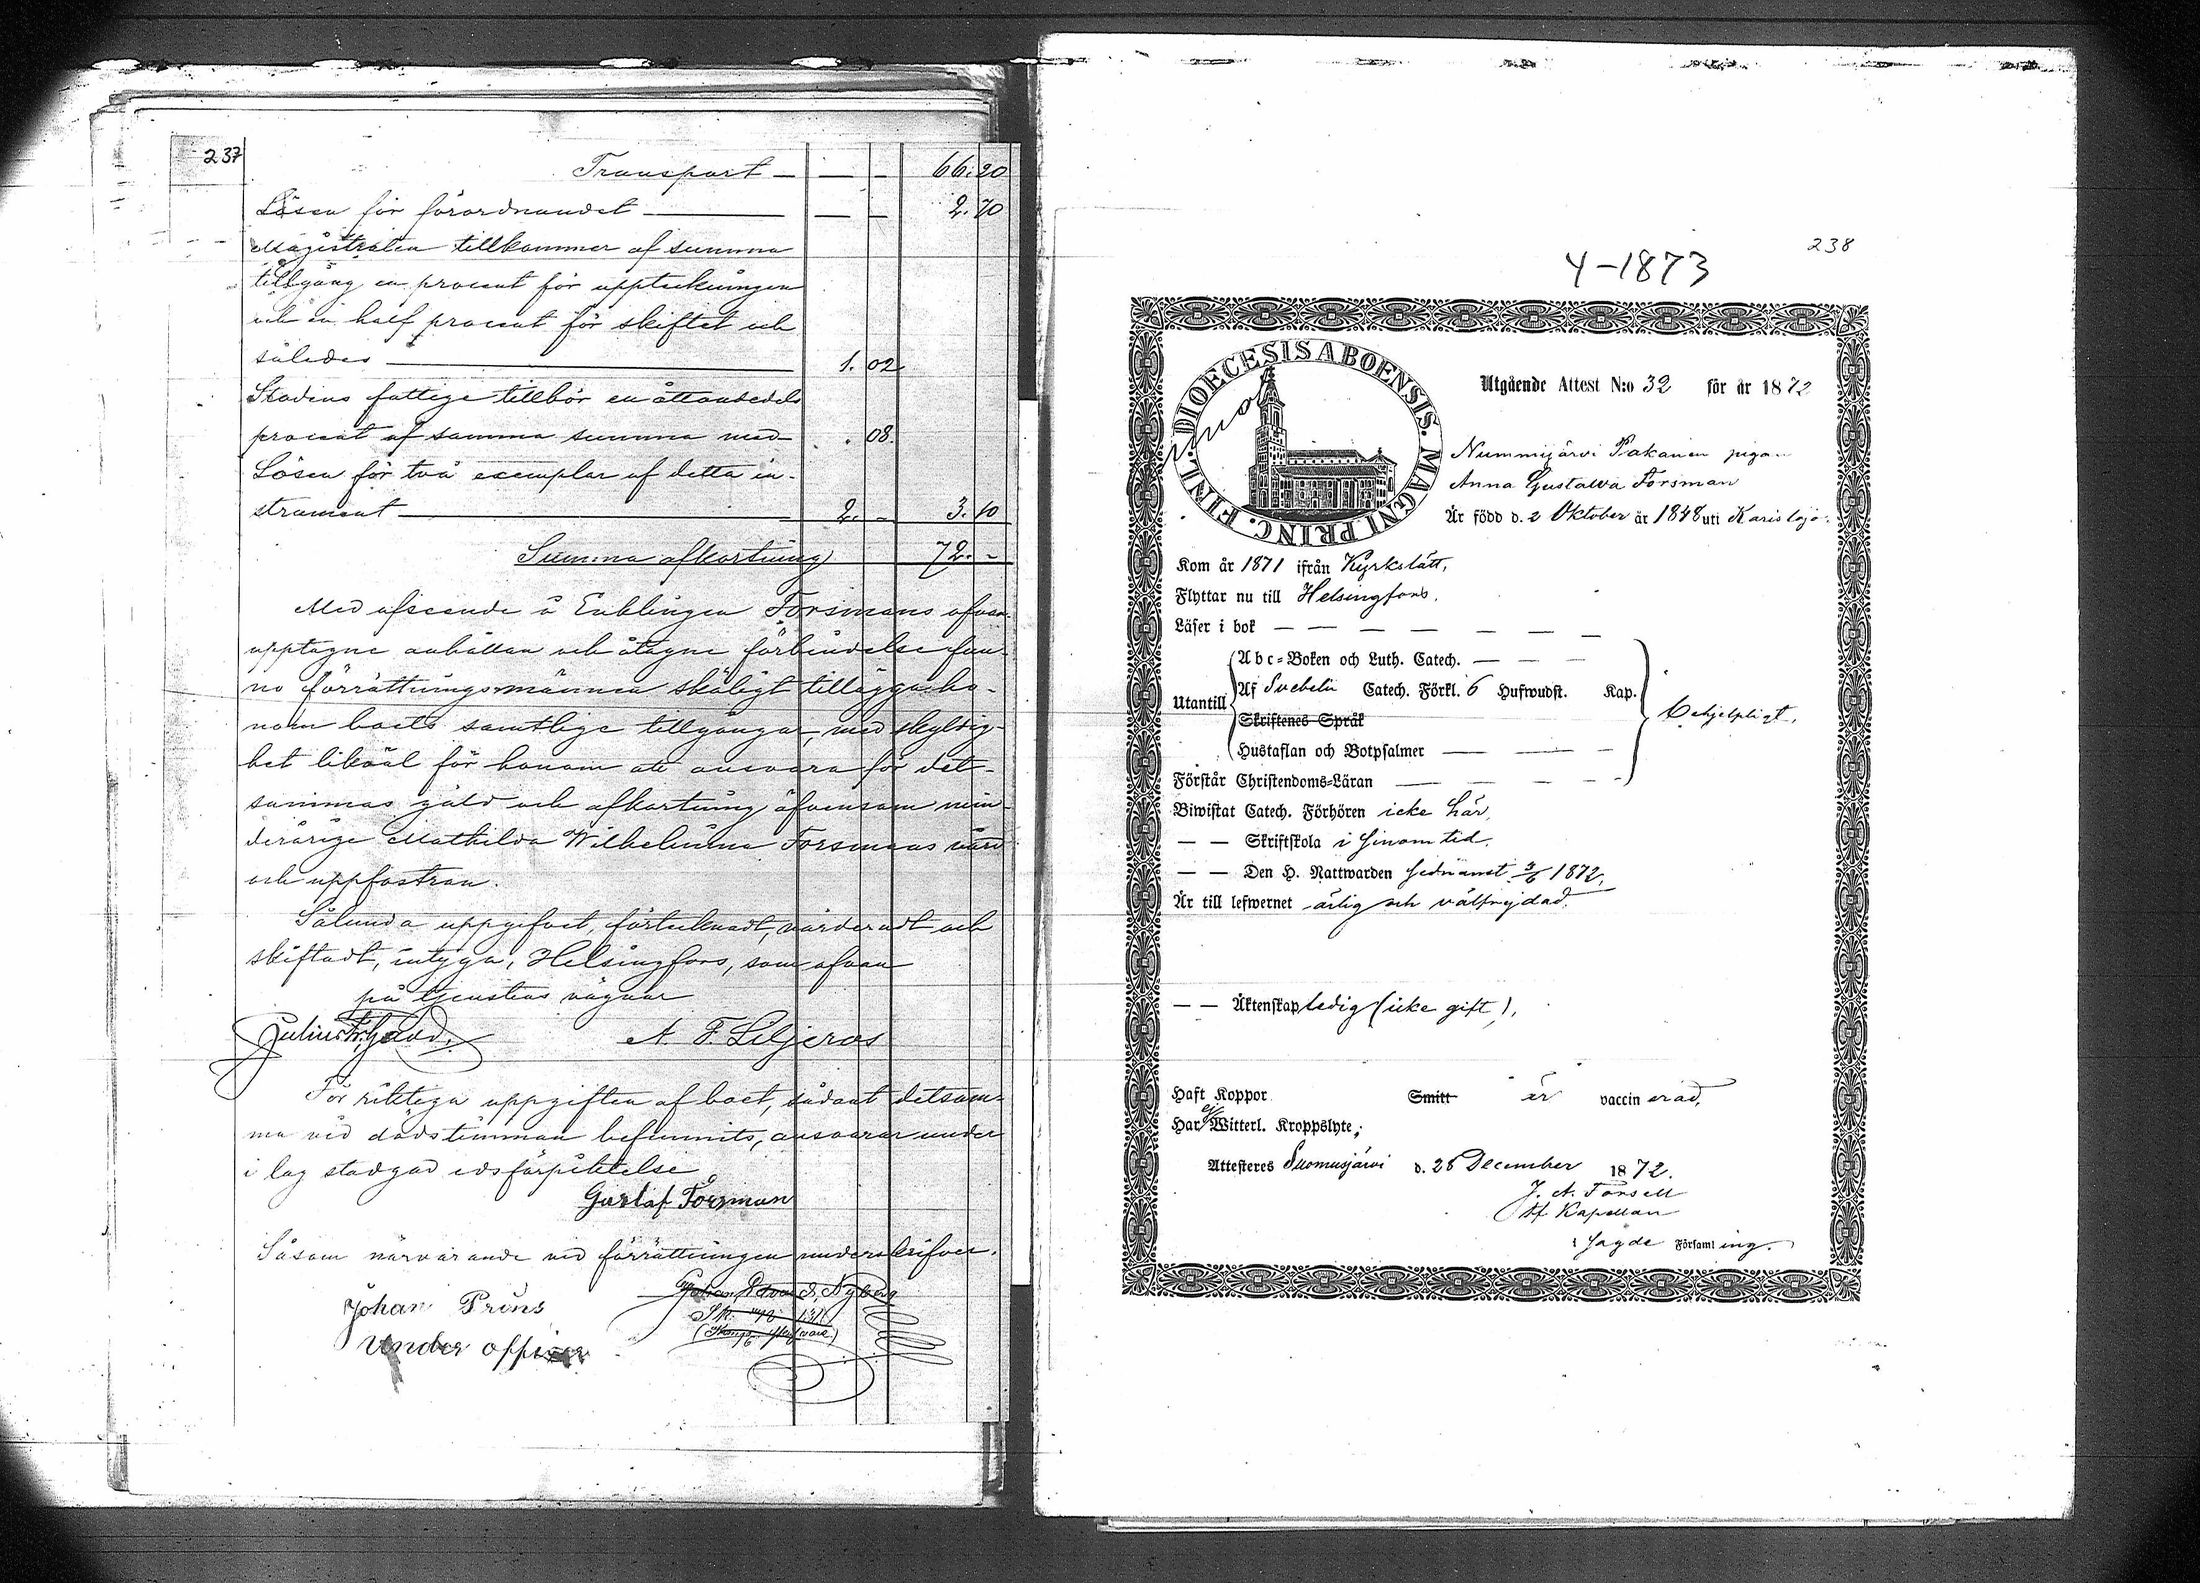 237
Transport — — — 66. 20
Lösen för förordnandet — — — 2. 70
Magistraten tillkommer af summa
tillgång en procent för uppteckningen
och en half procent för skiftet och
således — 1. 02
Stadens fattige tillhör en åttondedels
procent af samma summa med . 08.
Lösen för två exemplar af detta in-
strument — 2. - 3. 10
Summa afkortning 72. -
Med afseende å Enklingen Forsmans ofvan
upptagne anhållan och åtagne förbindelse fun-
no förrättningsmännen skäligt tillägga ho-
nom boets samtlige tillgångar, med skyldig-
het likväl för honom att ansvara för det-
sammas gäld och afkortning äfvensom min-
derårige Mathilda Wilhelmina Forsmans vård
och uppfostran.
Sålunda uppgifvet, förtecknadt, värderadt och
skiftadt, intyga, Helsingfors, som ofvan
på tjenstens vägnar
Julius A. F. Liljeros
För riktiga uppgiften af boet, sådant detsam-
ma vid dödstimman befunnits, ansvarar under
i lag stadgad edsförpliktelse
Gustaf Forsman
Såsom närvarande vid förrättningen underskrifver.
Johan Prins Johan Edvard Nyberg
Under officer
238
4-1873
DIOECESIS ABOENSIS. MAGNI PRINC. FINL.
Utgående Attest N:o 32 för år 1872
Nummijärvi Pakanen pigan
Anna Gustava Forsman
Är född d. 2 Oktober år 1848 uti Karislojo.
Kom år 1871 ifrån Kyrkslätt,
Flyttar nu till Helsingfors.
Läser i bok — — — — — — —
Abc-Boken och Luth. Catech. — — —
Utantill Af Svebelii Catech. Förkl. 6 Hufwudst. Kap. behjelpligt.
Skriftenes Språk
Hustaflan och Botpsalmer — — —
Förstår Christendoms-Läran — — — —
Biwistat Catech. Förhören icke här,
— — Skriftskola i sinom tid.
— — Den H. Nattwarden sednamst 2/6 1872.
Är till lefwernet ärlig och välfrejdad.
— — Äktenskap ledig (icke gift).
Haft Koppor Smitt är vaccinerad,
Har ej Witterl. Kroppslyte;
Attesteres Suomusjärvi d. 28 December 1872.
J. A. Forsell
Kapellan
i sagde Församling.